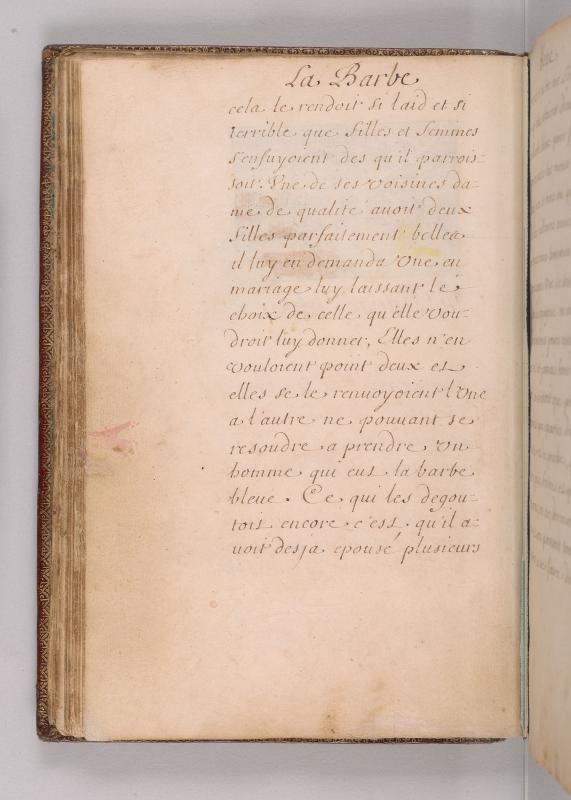 La Barbe
cela le rendoit si laid et si
terrible que filles et femmes
s'enfuyoient des qu'il parrois=
soit. Vne de ses voisines da=
me de qualité auoit deux
filles parfaitement belles
il luy en demanda Vne en
mariage luy laissant le
choix de celle qu'elle vou=
droit luy donner, Elles n'en
vouloient point deux et
elles se le renuoyoient l'Vne
a l'autre ne pouuant se
resoudre a prendre Vn
homme qui eut la barbe
bleue. Ce qui les degou=
toit encore c'est qu'il a=
uoit desja epousé plusieurs